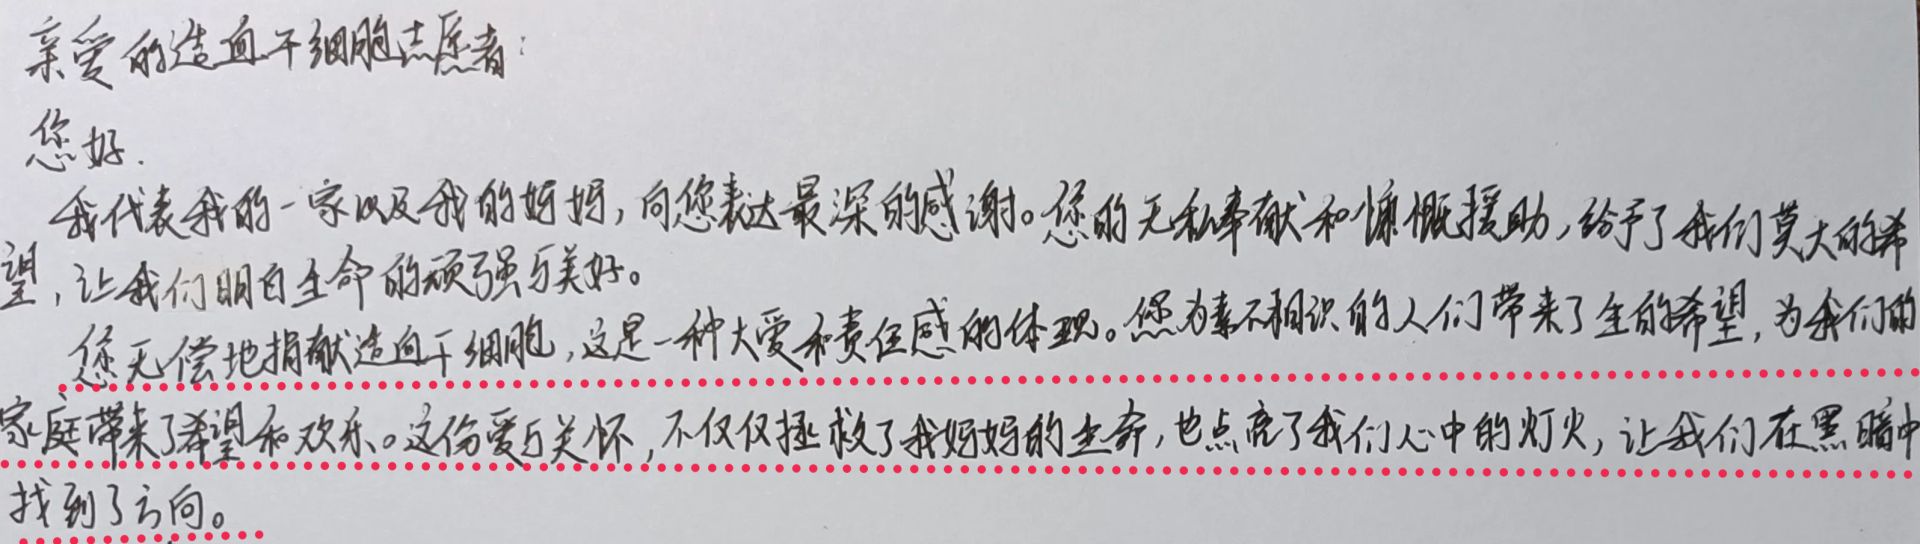 亲爱的造血干细胞志愿者：
您好.
我代表我的一家以及我的妈妈，向您表达最深的感谢。您的无私奉献和慷慨援助，给予了我们莫大的希
望，让我们明白生命的顽强与美好。
您无偿地捐献造血干细胞，这是一种大爱和责任感的体现。您为素不相识的人们带来了生的希望，为我们的
家庭带来了希望和欢乐。这份爱与关怀，不仅仅拯救了我妈妈的生命，也点亮了我们心中的灯火，让我们在黑暗中
找到了方向。